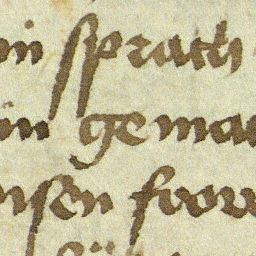 in sprach
in gemac
nsen foor